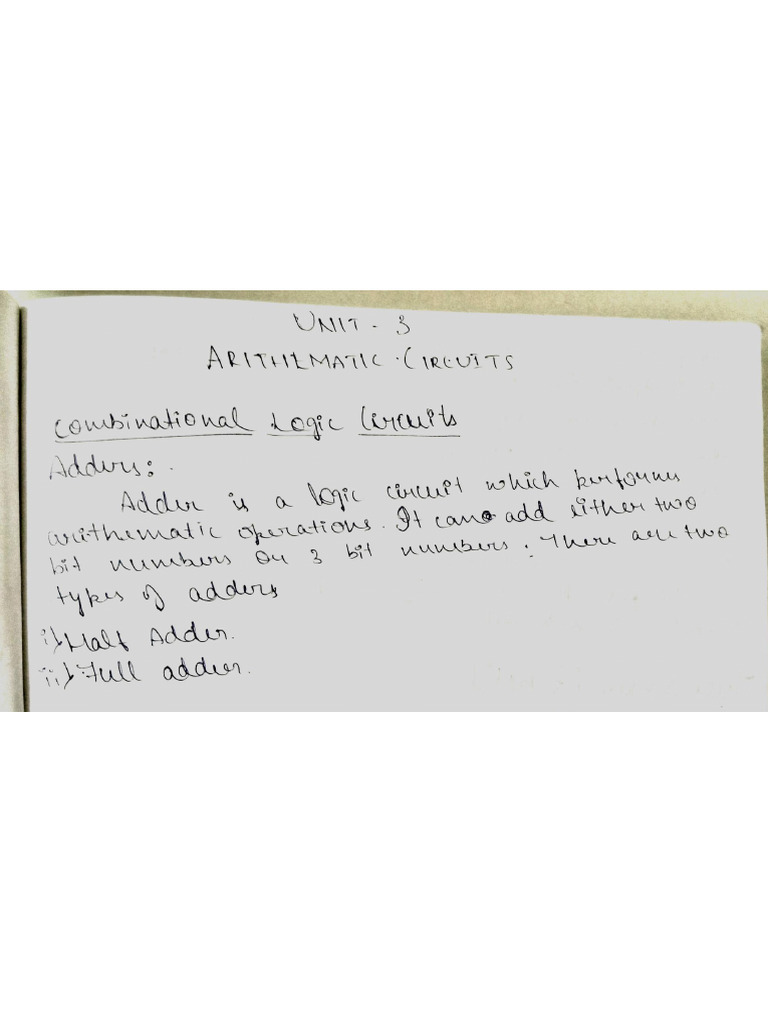 UNIT - 3
ARITHEMATIC CIRCUITS
Combinational Logic Circuits
Adders:
Adder is a logic circuit which performs
arithematic operations. It can add either two
bit numbers or 3 bit numbers. There are two
types of adders
i) Half Adder.
ii) Full adder.